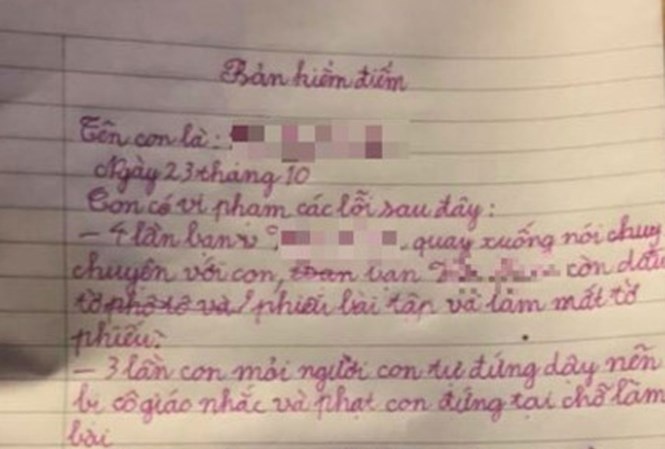 Bản hiểm điểm
Tên con là:
Ngày 23 tháng 10
Con có vi phạm các lỗi sau đây:
- 4 lần bạn quay xuống nói chuy
chuyên với con, bạn còn dấu
tờ phô tô và phiếu bài tập và làm mất tờ
phiếu.
- 3 lần con mỏi người con tự đứng dậy nên
bị cô giáo nhắc và phạt con đứng tại chỗ làm
bài